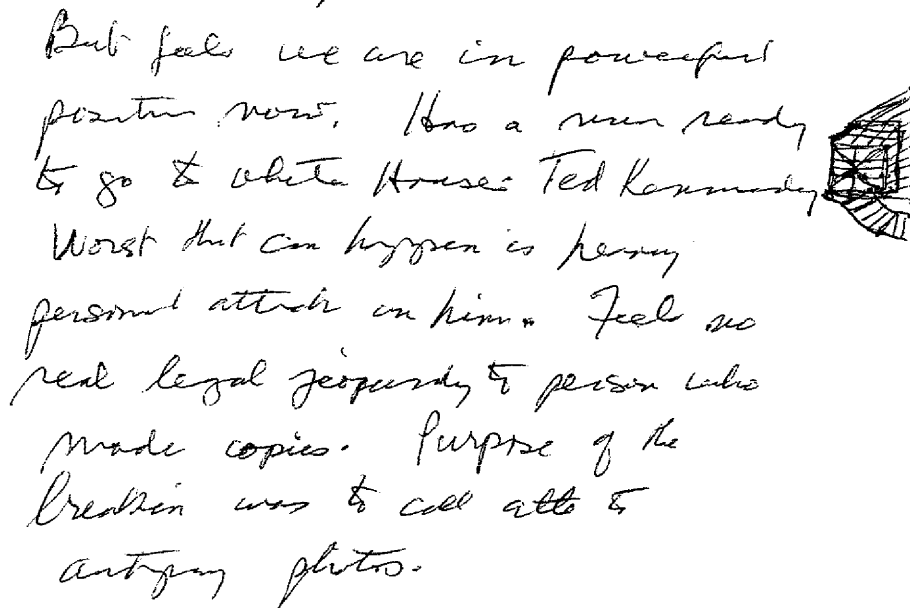 But feels we are in powerful
position now. Has a man ready
to go to White House: Ted Kennedy
Worst that can happen is heavy
personal attack on him. Feels no
real legal jeopardy to person who
made copies. Purpose of the
breakin was to call attn to
autopsy photos.